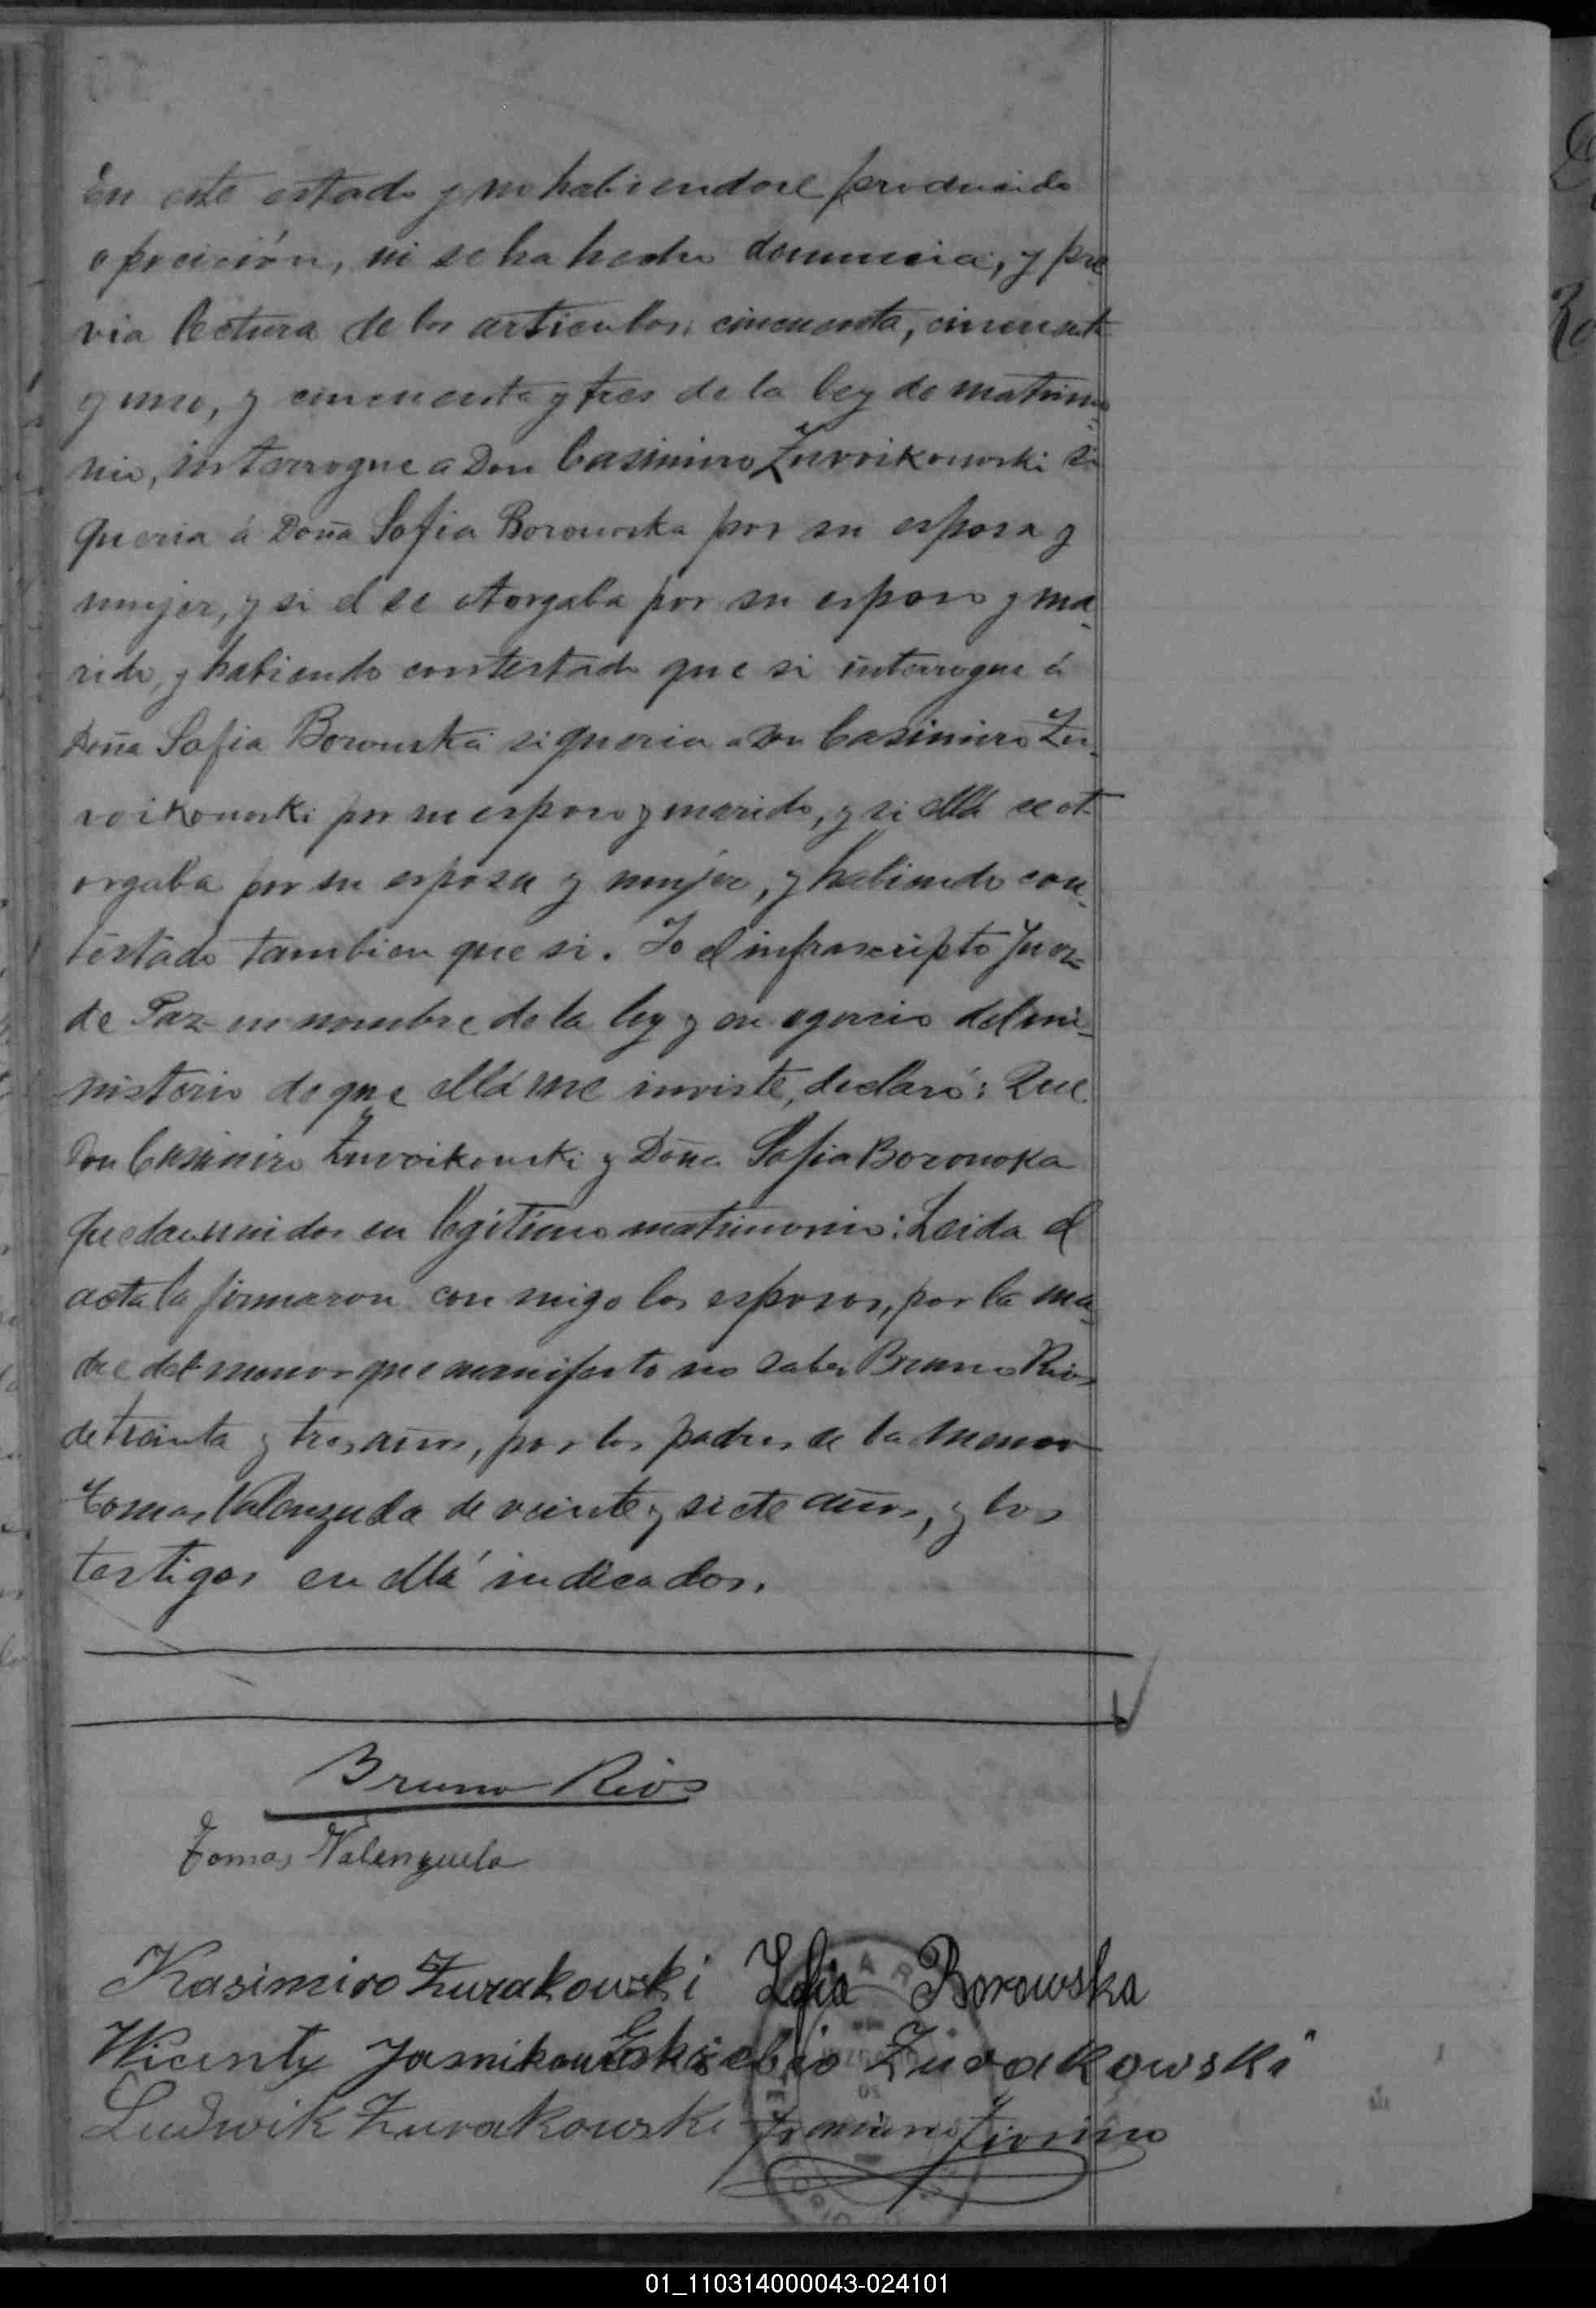 En este estado y no habiendose producido
oposición, ni se ha hecho denuncia, y pre
via lectura de los articulos; cincuenta, cincuenta
y uno, y cincuenta y tres de la ley de matrimo
nio, interrogue a Don Casimiro Zuroikowski si
queria á Doña Sofia Borowska por su esposa y
mujer, y si el se otorgaba por su esposo y ma-
rido, y habiendo contestado que si interrogue á
Doña Sofia Borowska si queria a Don Casimiro Zu-
roikowski por su esposo y marido, y si ellá se ot
orgaba por su esposa y mujer, y habiendo con-
testado tambien que si. Yo el infrascripto Juez
de Paz en nombre de la ley y en egercio del mi-
nisterio de que ellá me inviste, declaró: Que
Don Casimiro Zuroikowski y Doña Sofia Borowska
quedan unidos en legitimo matrimonio: Leida el
acta la firmaron con migo los esposos, por la ma-
dre del menor que manifesto no saber Bruno Rios
de treinta y tres años, por los padres de la menor
Tomas Valenzuela de veinte y siete años, y los
testigos en ellá indicados.
Bruno Rios
Tomas Valenzuela
Kasimiro Żurakowski Zofia Borowska
Wicenty Jasnikowski Żurakowski
Ludwik Żurakowski
01_110314000043-024101